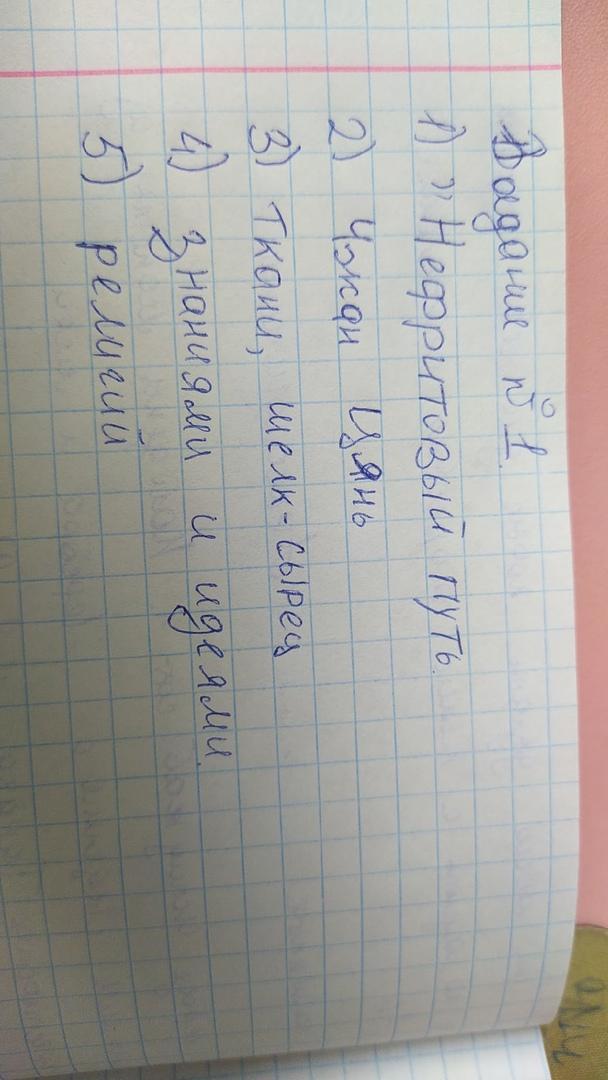 Задание №1.
1) "Нефритовый путь.
2) Чжан Цянь
3) ткани, шелк-сырец
4) знаниями и идеями.
5) религий